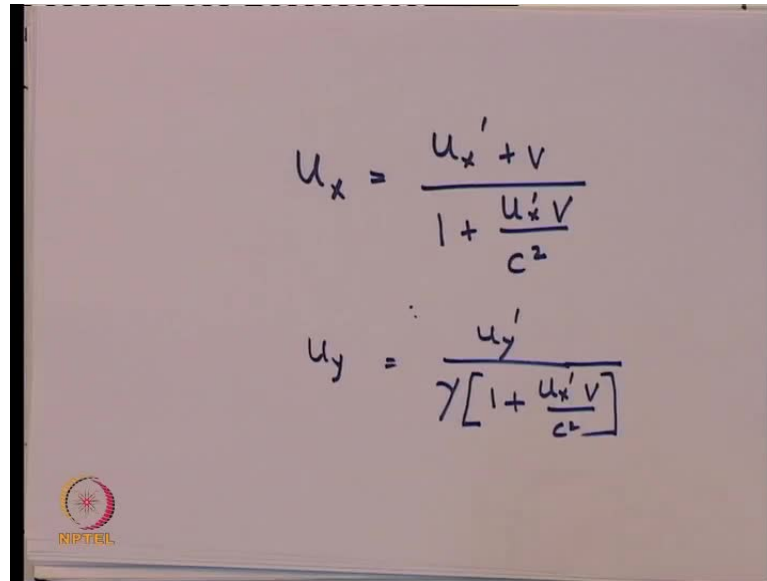 Ux = Ux' + v / 1 + Ux' V / c²
Uy = Uy' / γ[1 + Ux' V / c²]
NPTEL